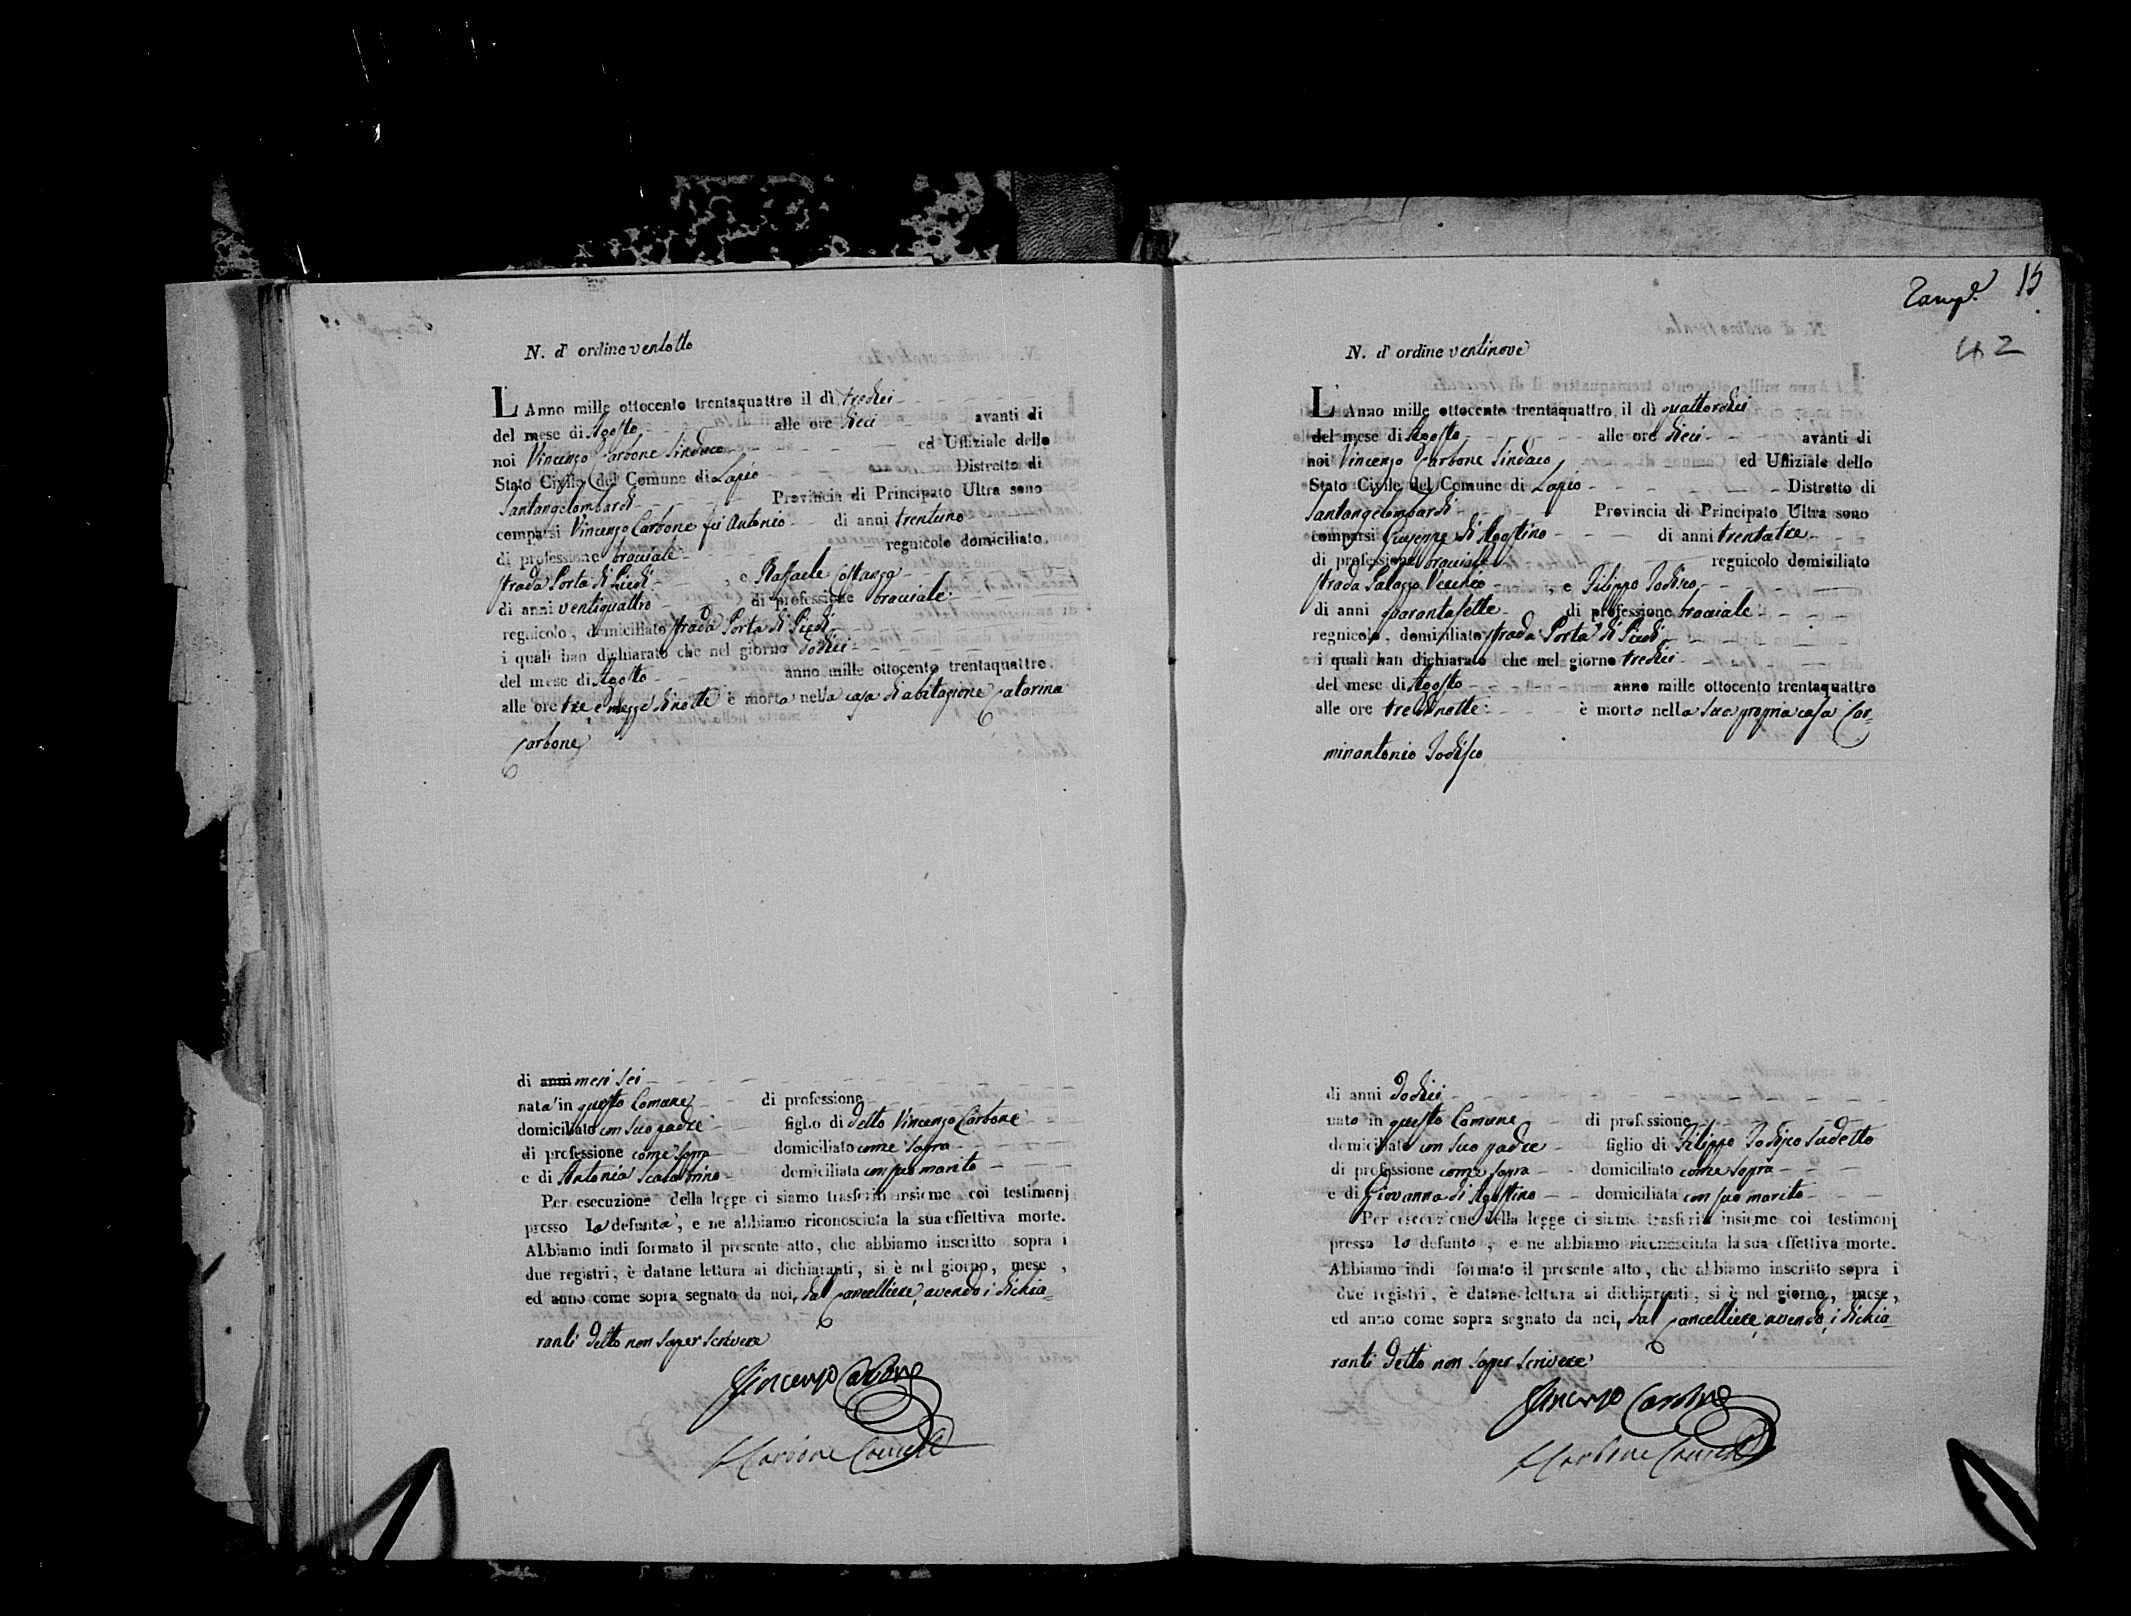 N. d' ordine ventotto
L' Anno mille ottocento trentaquattro il dì tredici
del mese di Agosto alle ore dieci avanti di
noi Vincenzo Carbone Sindaco ed Uffiziale dello
Stato Civile del Comune di Lapio Distretto di
Santangelombardi Provincia di Principato Ultra sono
comparsi Vincenzo Carbone fu Antonio di anni trentuno
di professione bracciale regnicolo domiciliato
strada Porta di Piedi , e Raffaele
di anni ventiquattro di professione bracciale
regnicolo, domiciliato strada Porta di Piedi
i quali han dichiarato che nel giorno dodici
del mese di Agosto anno mille ottocento trentaquattro
alle ore tre e mezze di notte è morta nella casa di abitazione Catarina
Carbone
di anni mesi sei
nata in questo Comune di professione
domiciliato con suo padre figlio di detto Vincenzo Carbone
di professione come sopra domiciliato come sopra
e di Antonia domiciliata con suo marito
Per esecuzione della legge ci siamo trasferiti insieme coi testimonj
presso la defunta, e ne abbiamo riconosciuta la sua effettiva morte.
Abbiamo indi formato il presente atto, che abbiamo inscritto sopra i
due registri, è datane lettura ai dichiaranti, si è nel giorno, mese,
ed anno come sopra segnato da noi, dal Cancelliere, avendo i dichia=
ranti detto non saper scrivere
Vincenzo Carbone
Carbone Cancell
15
42
N. d' ordine ventinove
L' Anno mille ottocento trentaquattro il dì quattordici
del mese di Agosto alle ore dieci avanti di
noi Vincenzo Carbone Sindaco ed Uffiziale dello
Stato Civile del Comune di Lapio Distretto di
Santangelombardi Provincia di Principato Ultra sono
comparsi Giuseppe di Agostino di anni trentatre
di professione bracciale regnicolo domiciliato
strada Palazzo Vecchio , e Filippo Iodisco
di anni quarantasette di professione bracciale
regnicolo, domiciliato strada Porta di Piedi
i quali han dichiarato che nel giorno tredici
del mese di Agosto anno mille ottocento trentaquattro
alle ore tre di notte è morto nella sua propria casa Car=
minantonio Iodisco
di anni dodici
nato in questo Comune di professione
domiciliato con suo padre figlio di Filippo Iodisco sudetto
di professione come sopra domiciliato come sopra
e di Giovanna di Agostino domiciliata con suo marito
Per esecuzione della legge ci siamo trasferiti insieme coi testimonj
presso lo defunto, e ne abbiamo riconosciuta la sua effettiva morte.
Abbiamo indi formato il presente atto, che abbiamo inscritto sopra i
due registri, è datane lettura ai dichiaranti, si è nel giorno, mese,
ed anno come sopra segnato da noi, dal Cancelliere, avendo i dichia=
ranti detto non saper scrivere
Vincenzo Carbone
Carbone Cancell